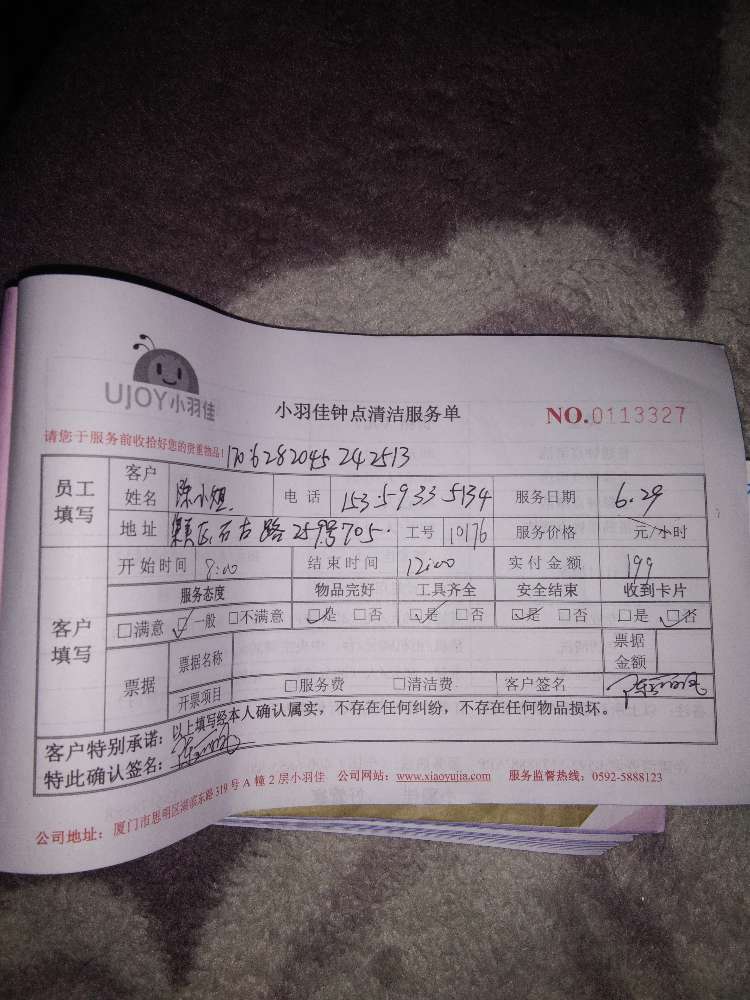 UJOY小羽佳
小羽佳钟点清洁服务单
NO.0113327
请您于服务前收拾好您的贵重物品!
1706282045242513
员工填写 客户姓名 陈小姐 电话 153 5933 5134 服务日期 6.29
地址 路259号705 工号 10176 服务价格 元/小时
客户填写 开始时间 :00 结束时间 12:00 实付金额 199
服务态度 物品完好 工具齐全 安全结束 收到卡片
□满意 □一般 □不满意 □是 □否 □是 □否 □是 □否 □是 □否
票据 票据名称 票据金额
开票项目 □服务费 □清洁费 客户签名
客户特别承诺:以上填写经本人确认属实,不存在任何纠纷,不存在任何物品损坏。
特此确认签名:
公司地址:厦门市思明区湖滨东路319号A幢2层小羽佳 公司网站:www.xiaoyujia.com 服务监督热线:0592-5888123